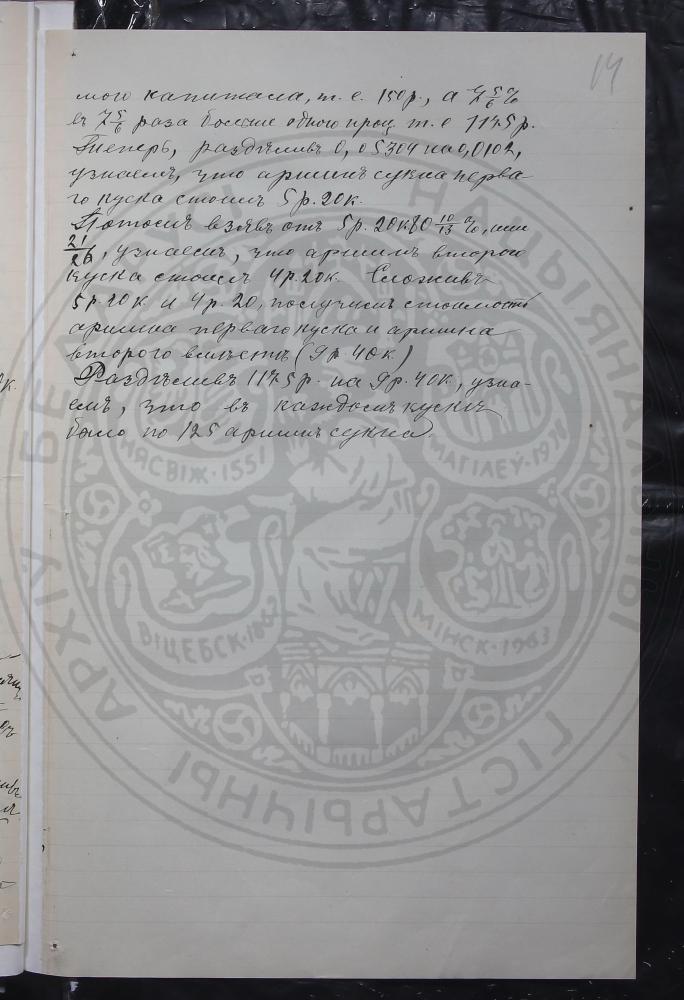 14
мого капитала, т. е. 150 р., а 7 5/6 %
въ 7 5/6 раза больше одного проц. т. е 1175 р.
Теперь, раздѣливъ 0,05304 на 0,0102,
узнаемъ, что аршинъ сукна перва
го куска стоитъ 5 р. 20 к.
Потомъ взявъ отъ 5 р. 20 к 80 10/13 %, или
21/26, узнаемъ, что аршинъ второго
куска стоитъ 4 р. 20 к. Сложивъ
5 р. 20 к. и 4 р. 20, получимъ стоимость
аршина перваго куска и аршина
второго вмѣстѣ (9 р. 40 к.)
Раздѣливъ 1175 р. на 9 р. 40 к., узна-
емъ, что въ каждомъ кускѣ
было по 125 аршинъ сукна.
НЯСВІЖ · 1551
МАГІЛЕЎ · 19
ВІЦЕБСК · 1863
МІНСК · 1963
ГІСТАРЫЧНЫ АРХІЎ